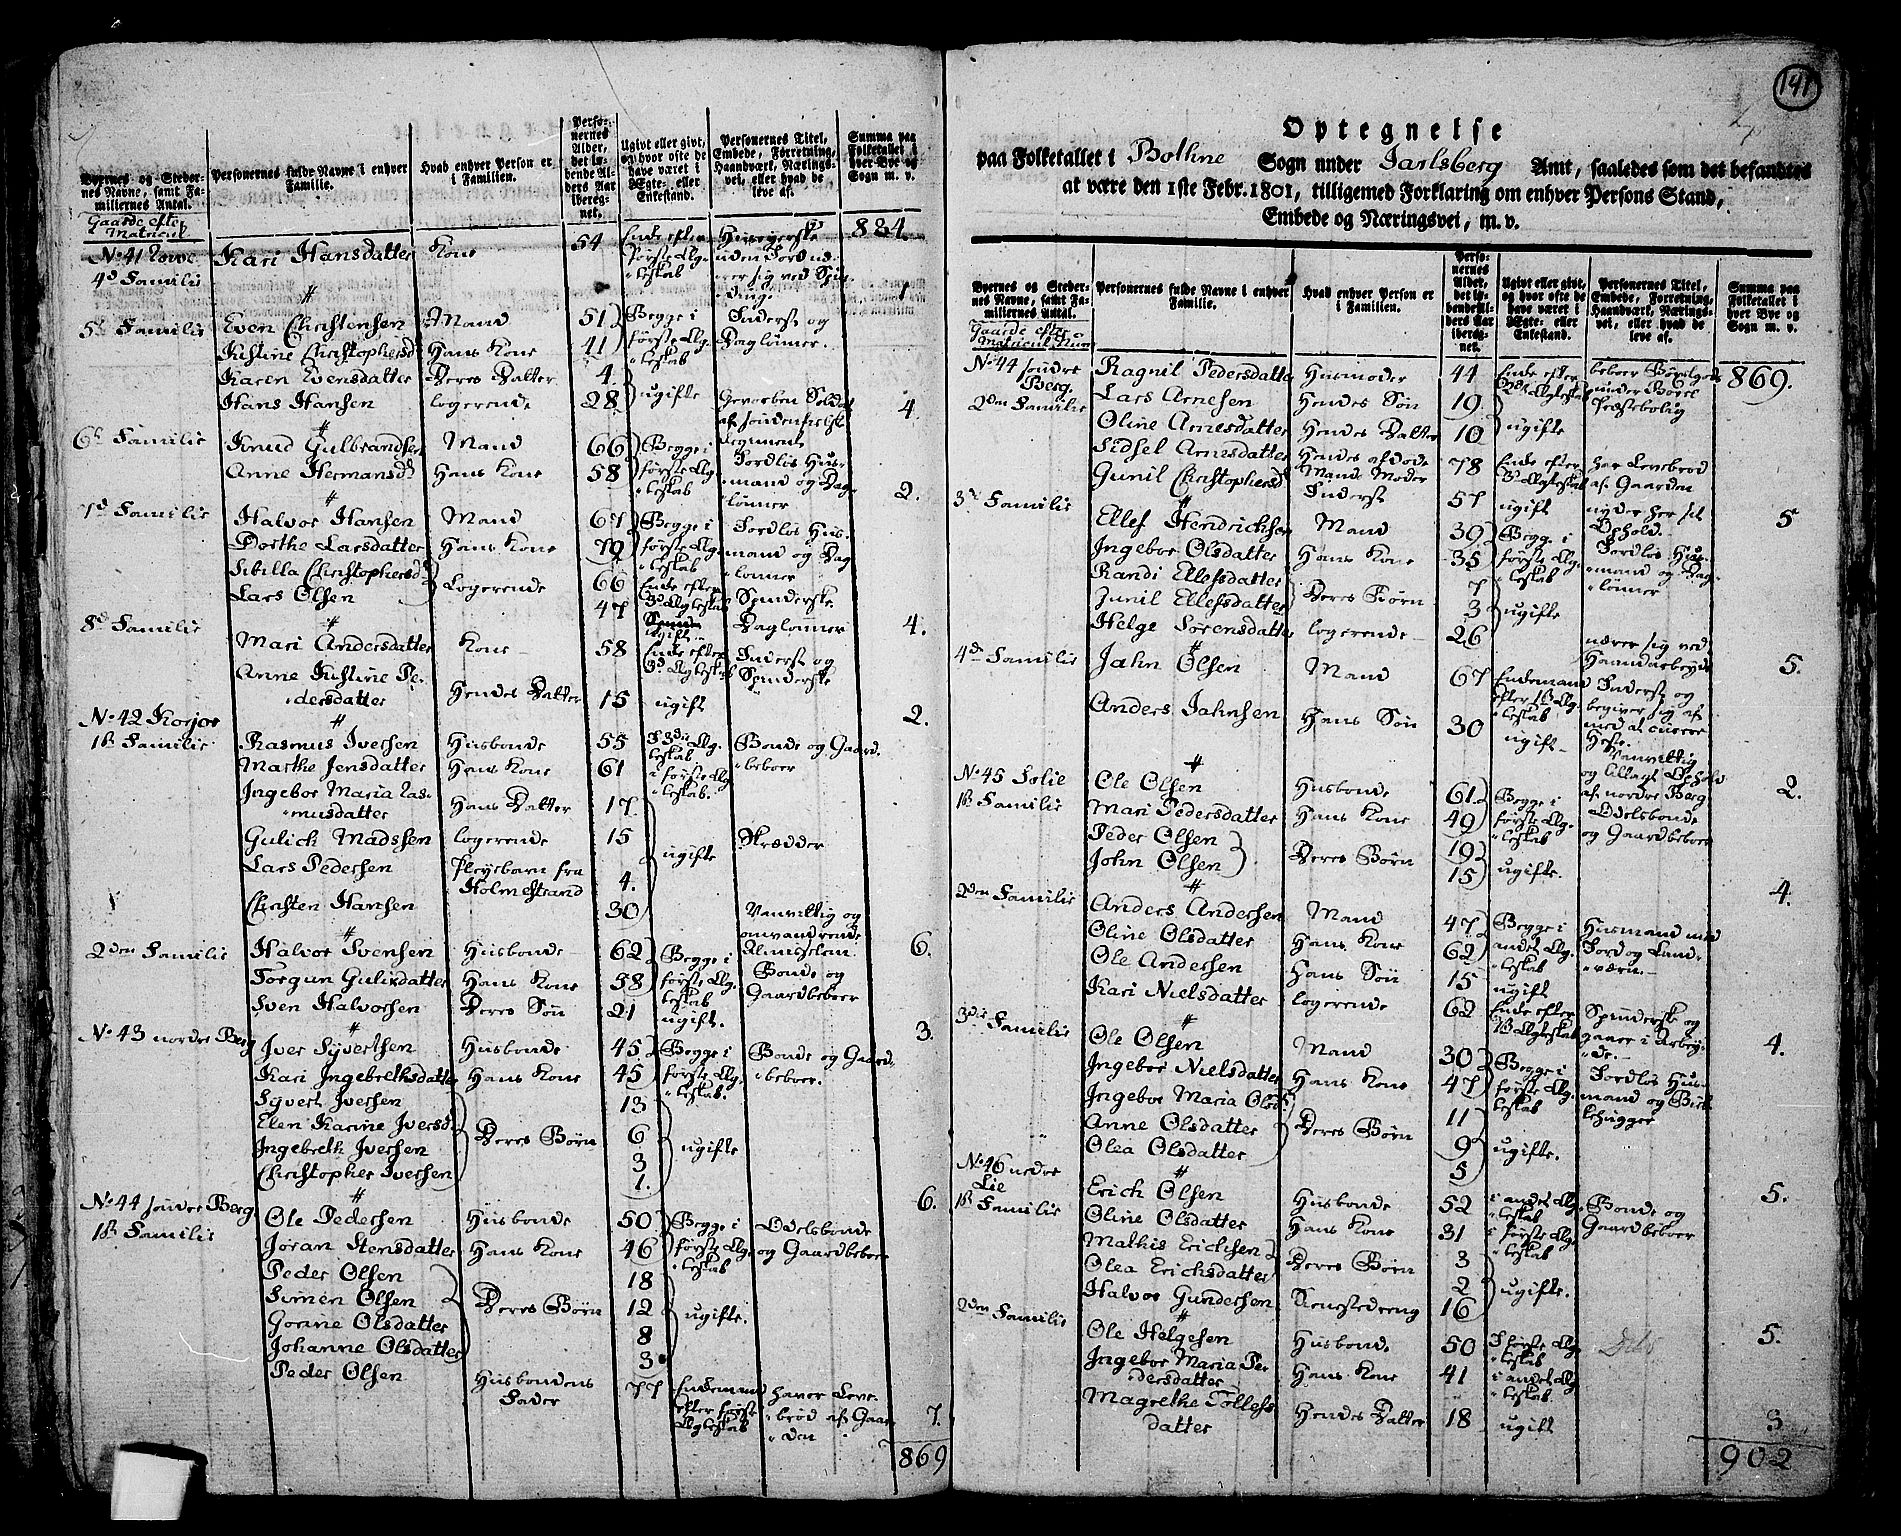 Byernes og Steder-
nes Navne, samt Fa-
miliernes Antal.
Personernes fulde Navne i enhver
Familie.
Hvad enhver Person er
i Familien.
Perso-
nernes
Alder,
det lø-
bende Al-
ders Aar
iberegn-
net.
Ugivt eller givt,
og hvor ofte de
have været i
Ægte- eller
Enkestand.
Personernes Titel,
Embede, Forretning,
Haandværk, Nærings-
vei, eller hvad de
leve af.
Summa paa
Folketallet i
hver Bye og
Sogn m. v.
Gaarde efter
Matricul
884.
No 41
4de Familie Kari Hansdatter Kone 54 Enke efter første Ægteskab 1
5te Familie Even Christensen Mand 51 Begge i første Ægteskab Inderst og Daglønner
Kistine Christophersd Hans Kone 41
Karen Evensdatter Deres Datter 4. ugifte
Hans Hansen logerende 28 Gevorben Soldat 4.
6te Familie Knud Gulbrandsen Mand 66 Begge i første Ægteskab Jordløs Husmand og Daglønner
Anne Hermansd Hans Kone 58 2.
7de Familie Halvor Hansen Mand 67 Begge i første Ægteskab Jordløs Husmand og Daglønner
Dorthe Larsdatter Hans Kone 79
Sibilla Christophersd Logerende 66 Enke efter 3de Ægteskab Spinderske
Lars Olsen 47 ugift Daglønner 4.
8de Familie Mari Andersdatter Kone 58 Enke efter 3de Ægteskab Inderst og Spinderske
Anne Kistine Pe-
dersdatter Hendes Datter 15 ugift 2.
No 42 Korsjor
1ste Familie Rasmus Iversen Husbonde 55 I 3die Ægteskab Bonde og Gaardbeboer
Marthe Jensdatter Hans Kone 61 i første Ægteskab.
Ingebor Maria Ras-
musdatter Hans Datter 17
Gulich Madssen logerende 15 ugifte Skrædder
Lars Pedersen Pleyebarn fra Holmestrand 4.
Christen Hansen 30 Vanvittig og omvandrende Almisselem 6.
2den Familie Halvor Svensen Husbonde 62 Begge i første Ægteskab Bonde og Gaardbeboer
Torgun Guliksdatter Hans Kone 58
Sven Halvorsen Deres Søn 21 ugift. 3.
No 43 nordre Berg Iver Syvertsen Husbonde 45 Begge i første Ægteskab. Bonde og Gaardbeboer.
Kari Ingebrethsdatter Hans Kone 45
Syvert Iversen 13
Elen Karine Iversd. Deres Børn 6 ugifte
Ingebreth Iversen 3
Christopher Iversen 1. 6.
No 44 søndre Berg
1ste Familie Ole Pedersen Husbonde 50 Begge i første Ægteskab Odelsbonde og Gaardbeboer
Jøran Stensdatter Hans Kone 46
Peder Olsen 18
Simen Olsen Deres Børn 12 ugifte.
Gorine Olsdatter 8
Johanne Olsdatter 3
Peder Olsen Husbondens Fader 77 Enkemand efter første Ægteskab haver Levebrød af Gaarden 7.
869
141
Optegnelse
paa Folketallet i Bothne Sogn under Jarlsberg Amt, saaledes som det befandtes
at være den 1ste Febr. 1801, tilligemed Forklaring om enhver Persons Stand,
Embede og Næringsvei, m. v.
Byernes og Steder-
nes Navne, samt Fa-
miliernes Antal.
Personernes fulde Navne i enhver
Familie.
Hvad enhver Person er
i Familien.
Perso-
nernes
Alder,
det lø-
bende Al-
ders Aar
iberegn-
net.
Ugivt eller givt,
og hvor ofte de
have været i
Ægte- eller
Enkestand.
Personernes Titel,
Embede, Forretning,
Haandværk, Nærings-
vei, eller hvad de
leve af.
Summa paa
Folketallet i
hver Bye og
Sogn m. v.
Gaarde efter
869.
No 44 søndre Berg.
2den Familie Ragnil Pedersdatter Husmoder 44 Enke efter
Lars Arnesen Hendes Søn 19.
Oline Arnesdatter Hendes Datter 10 ugifte
Sidsel Arnesdatter Hendes afdøde Mands Moder 78 Enke efter har Levebrød af Gaarden
Gunil Christophersd Inderst 57 ugift nyder her sit Ophold. 5
3die Familie Ellef Hendrichsen Mand 39 Begge i første Ægteskab Jordløs Husmand og Daglønner
Ingebor Olsdatter Hans Kone 35
Randi Ellefsdatter Deres Børn 7
Junil Ellefsdatter 3 ugifte
Helge Sørensdatter logerende 26 nærer sig ved Haandarbeyde 5.
4de Familie Jahn Olsen Mand 67 Enkemand efter 1ste Ægteskab
Anders Jahnsen Hans Søn 30 ugift 2.
No 45 Solie
1ste Familie Ole Olsen Husbonde 61 Begge i første Ægteskab Odelsbonde og Gaardbeboer
Mari Pedersdatter Hans Kone 49
Peder Olsen Deres Børn 19 ugifte.
John Olsen 15 4.
2den Familie Anders Andersen Mand 47 Begge i andet Ægteskab Husmand med Jord
Oline Olsdatter Hans Kone 62
Ole Andersen Hans Søn 15 ugift
Kari Nielsdatter logerende 62 Enke efter Spinderske og gaaer i Arbeyde. 4.
3die Familie Ole Olsen Mand 30 Begge i første Ægteskab Jordløs Husmand og
Ingebor Nielsdatter Hans Kone 47
Ingebor Maria Olsd. 11
Anne Olsdatter Deres Børn 9 ugifte.
Olea Olsdatter 5 5.
No 46 nedre Lie
1ste Familie Erich Olsen Husbonde 52 i andet Ægteskab Bonde og Gaardbeboer
Oline Olsdatter Hans Kone 31 i første Ægteskab
Mathis Erichsen Deres Børn 3
Olea Erichsdatter 2 ugifte.
Halvor Gundersen Tienestedreng 16 5.
2den Familie Ole Helgesen Husbonde 50 I første Ægteskab
Ingebor Maria Pe-
dersdatter Hans Kone 41 i andet Ægteskab
Magrethe Tollefs
datter Hendes Datter 18 ugift 3
902